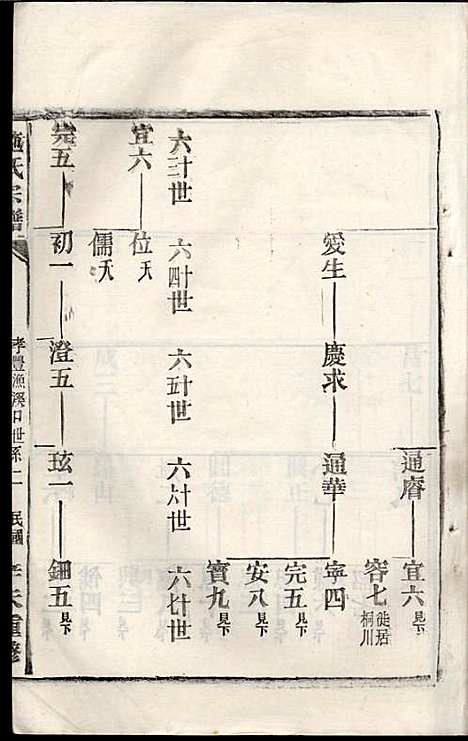 通
宜六 見下
容七 徙居桐川
愛生 慶求 通華 寧四
完五 見下
安八 見下
寶九 見下
六十三世 六十四世 六十五世 六十六世 六十七世
宜六 位 夭
儒 夭
完五 初一 澄五 玹一 鈿五 見下
施氏宗譜 孝豐漁溪口世系二 民國